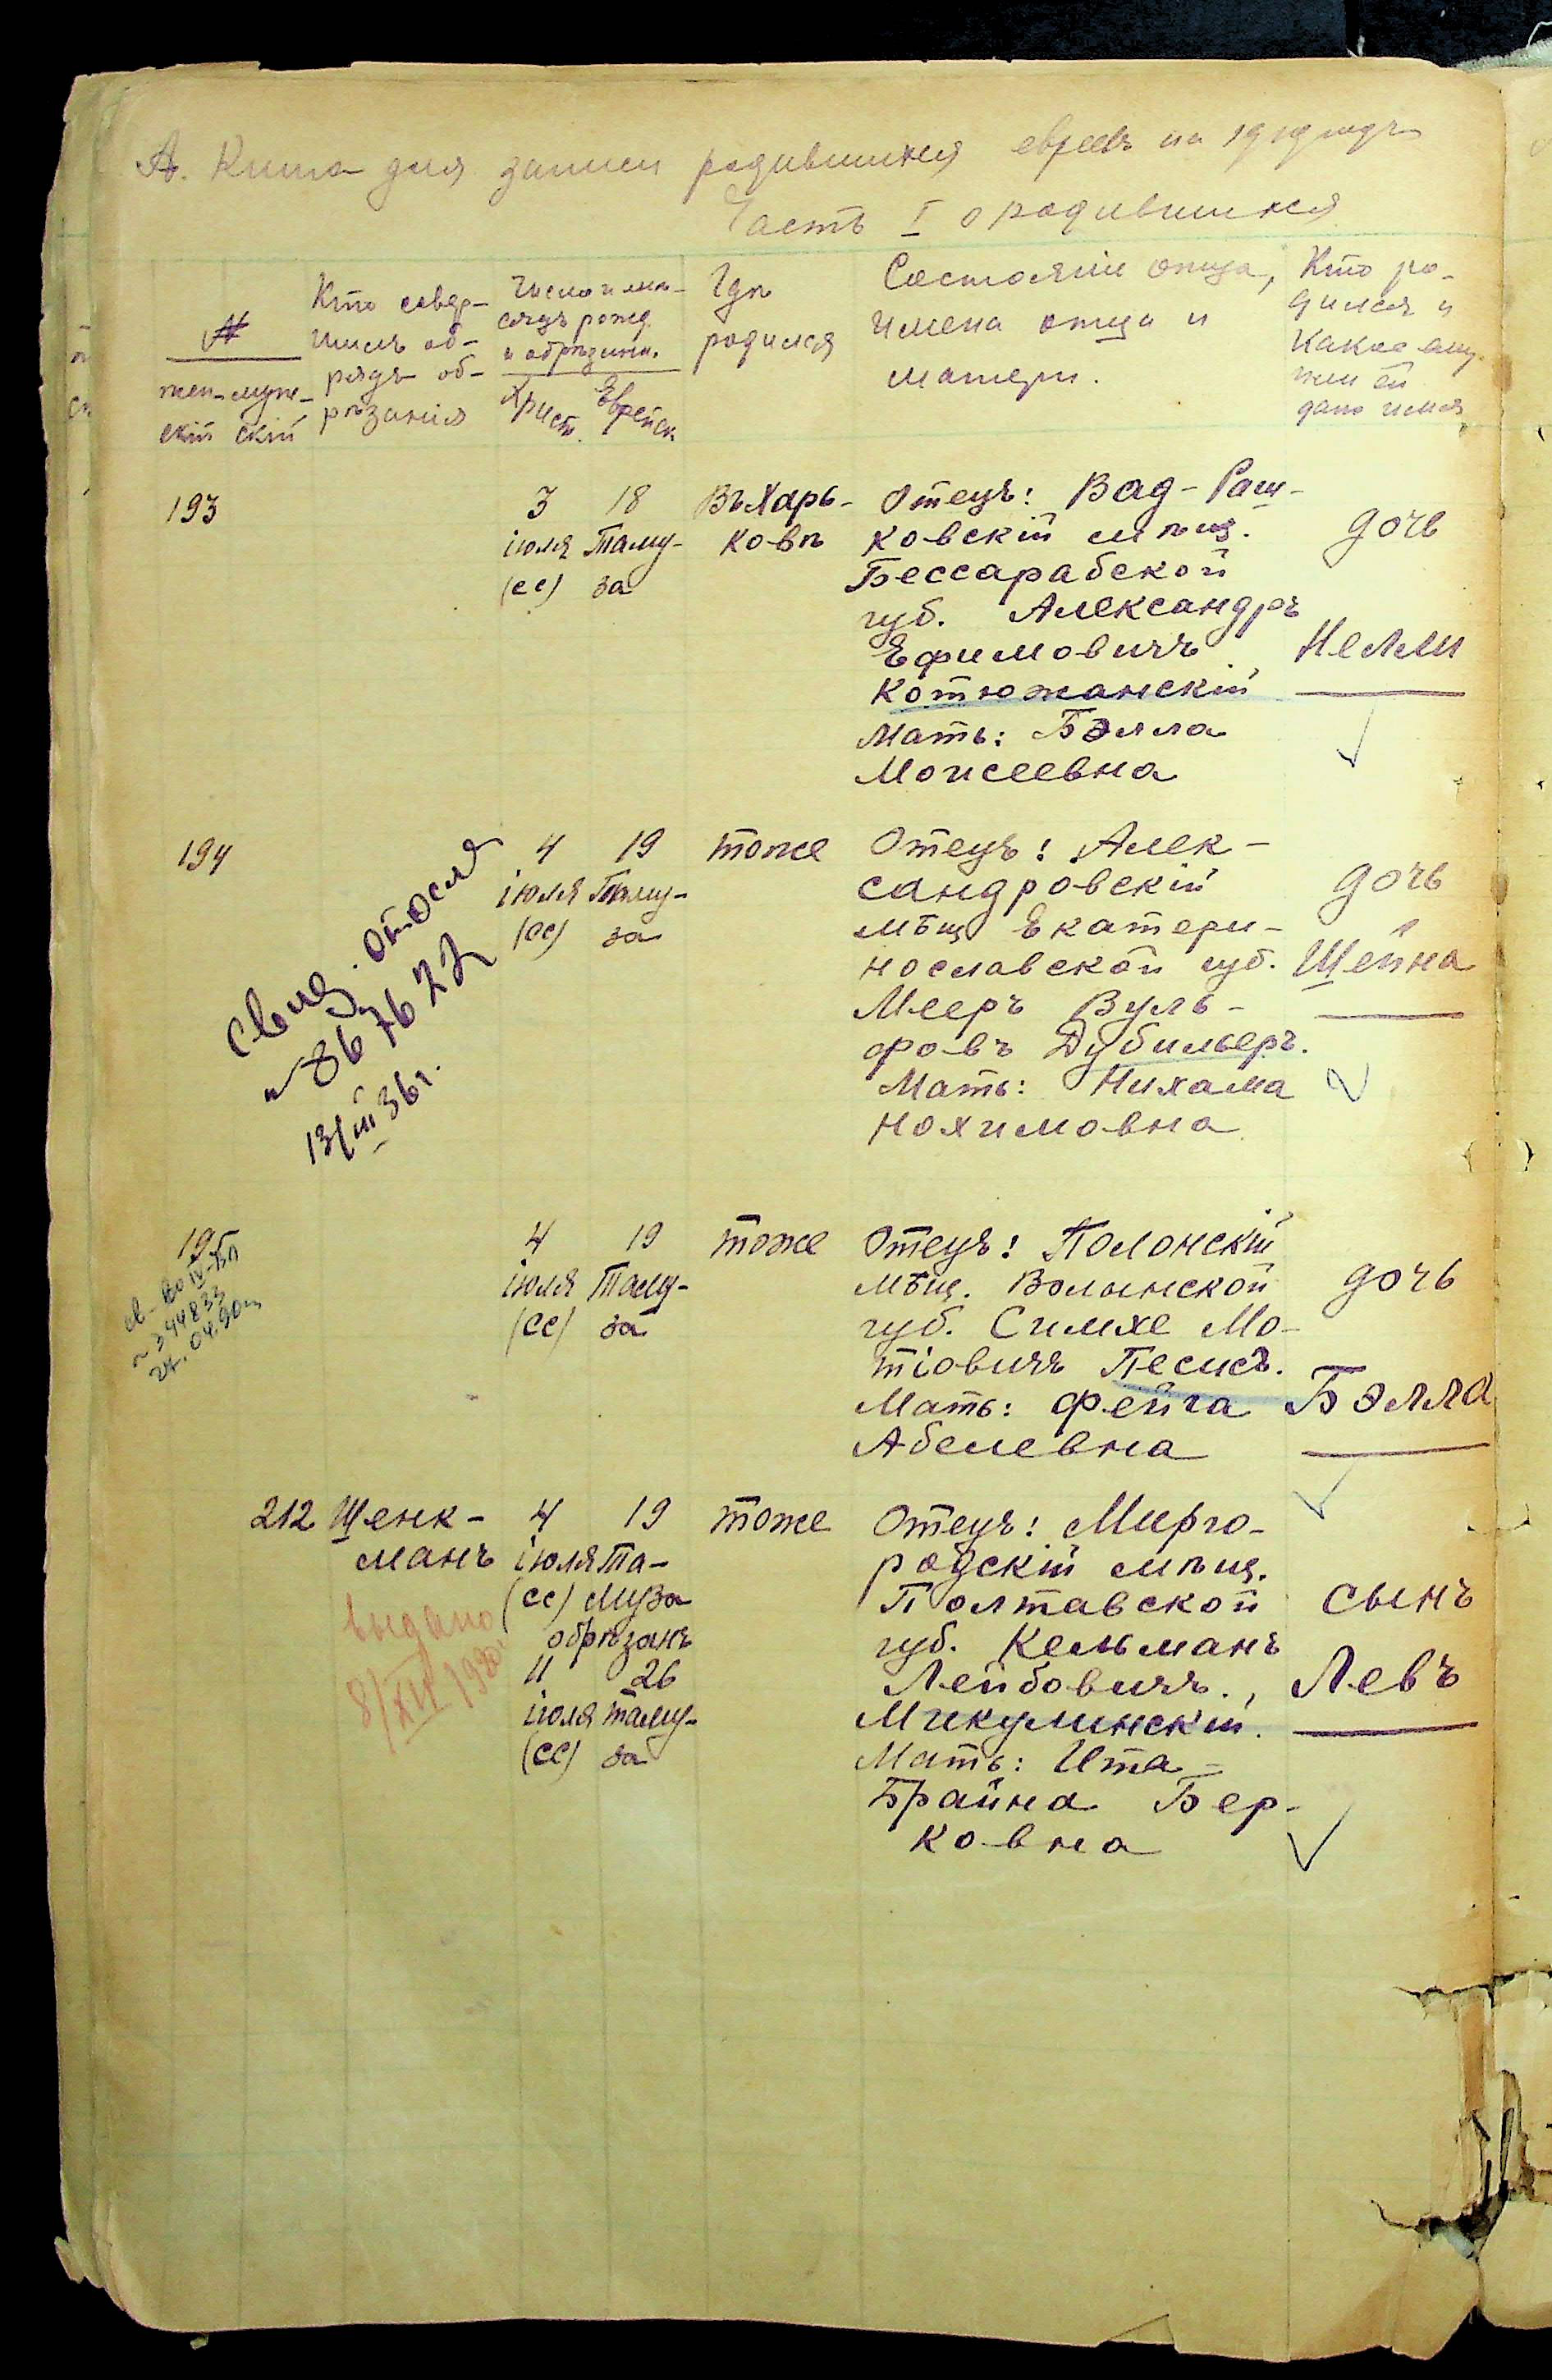 А. Книга для записи родившихся евреевъ на 1919 годъ
Часть I о родившихся
№
жен- муж-
скій скій
Кто совер-
шилъ об-
рядъ об-
рѣзанія
Число и мѣ-
сяцъ рожд.
и обрѣзанія.
Христ. Еврейск
Гдѣ
родился
Состояніе отца,
имена отца и
матери.
Кто ро-
дился и
какое ему
или ей
дано имя
193
3 18
іюля Таму-
(сс) за
Въ Харь-
ковѣ
Отецъ: Вад-Раш-
ковскій мѣщ.
Бессарабской
губ. Александръ
Ефимовичъ
Котюжанскій
Мать: Бэлла
Моисеевна
дочь
Нелли
194
свид. отосл
№ 867622
13/III 36 г.
4 19
іюля Таму-
(сс) за
тоже
Отецъ: Алек-
сандровскій
мѣщ Екатери-
нославской губ.
Мееръ Вуль-
фовъ Дубильеръ.
Мать: Нихама
Нохимовна
дочь
Шейна
195
св-во IV-БЛ
№ 344833
24.04.90г
4 19
іюля Таму-
(сс) за
тоже
Отецъ: Полонскій
мѣщ. Волынской
губ. Симхе Мо-
тіовичъ Песисъ.
Мать: Фейга
Абелевна
дочь
Бэлла
212
Шенк-
манъ
выдано
8/XII 1930
4 19
іюля Та-
(сс) муза
обрѣзанъ
11 26
іюля таму-
(сс) за
тоже
Отецъ: Мирго-
родскій мѣщ.
Полтавской
губ. Кельманъ
Лейбовичъ.,
Микулинскій.
Мать: Ита-
Брайна Бер-
ковна
сынъ
Левъ